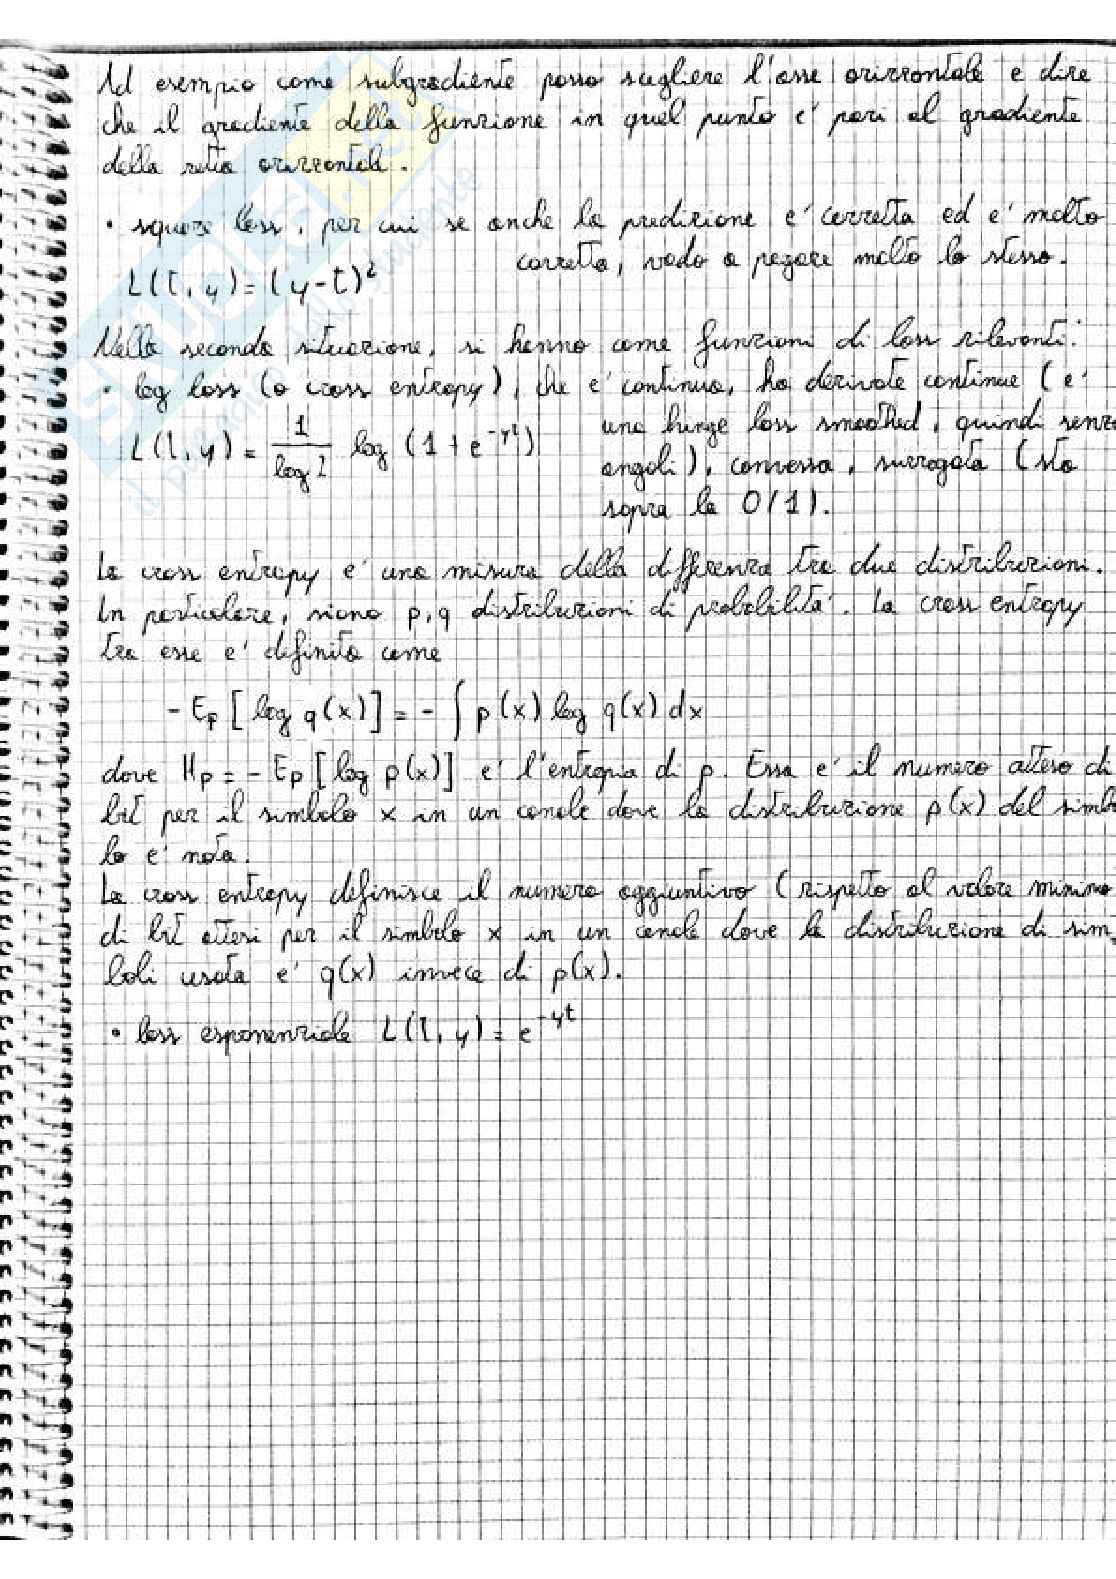 Ad esempio come subgradiente posso scegliere l'asse orizzontale e dire
che il gradiente della funzione in quel punto e' pari al gradiente
della retta orizzontale.
• square loss, per cui se anche la predizione e' corretta ed e' molto
corretta, vado a pagare molto lo stesso.
L(t, y) = (y-t)²
Nella seconda situazione, si hanno come funzioni di loss rilevanti:
• log loss (o cross entropy), che e' continua, ha derivate continue (e'
una hinge loss smoothed, quindi senza
L(t, y) = 1/log 2 log (1 + e^-yt)
angoli), convessa, surrogata (sta
sopra la 0/1).
La cross entropy e' una misura della differenza tra due distribuzioni.
In particolare, siano p, q distribuzioni di probabilita'. La cross entropy
tra esse e' definita come
- Ep [log q(x)] = - ∫ p(x) log q(x) dx
dove Hp = - Ep [log p(x)] e' l'entropia di p. Essa e' il numero atteso di
bit per il simbolo x in un canale dove la distribuzione p(x) del simbo
lo e' nota.
La cross entropy definisce il numero aggiuntivo (rispetto al valore minimo
di bit attesi per il simbolo x in un canale dove la distribuzione di sim
boli usata e' q(x) invece di p(x).
• loss esponenziale L(t, y) = e^-yt
SKUOLA.net
il paradiso dello studente